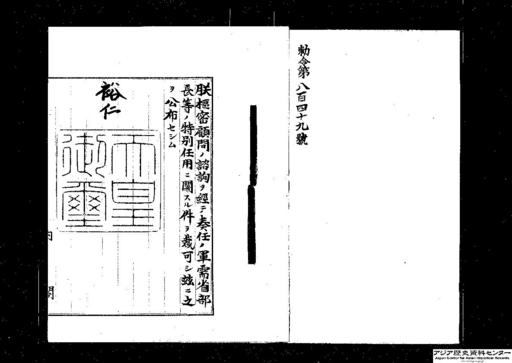 勅令第八百四十九號
朕樞密顧問ノ諮詢ヲ經テ奏任ノ軍需省部
長等ノ特別任用ニ關スル件ヲ裁可シ玆ニ之
ヲ公布セシム
裕仁
天皇
御璽
内閣
アジア歴史資料センター
Japan Center for Asian Historical Records